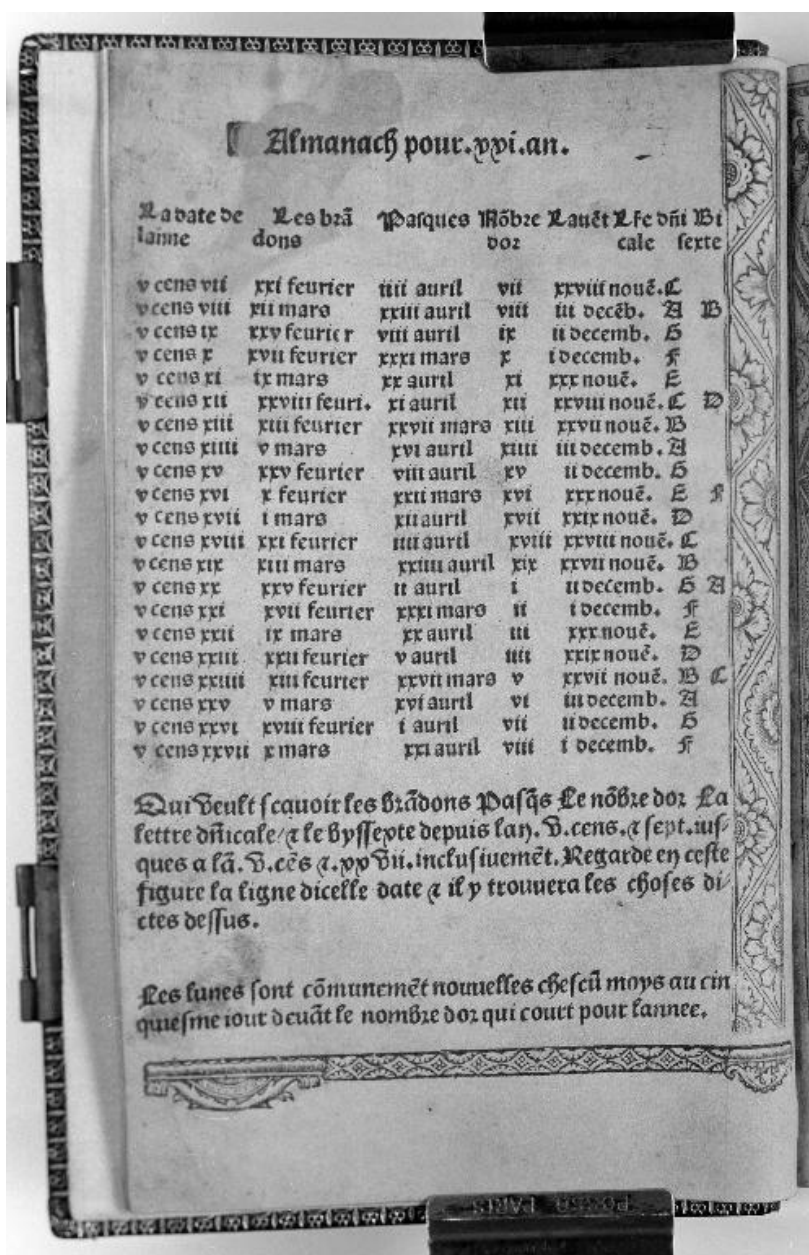 Almanach pour.xxi.an.
La date de Les brã Pasques Nõbre Lauẽt Lr̃e dñi Bi
lanne dons dor cale sexte
v cens vii xxi feurier iiii auril vii xxviii nouẽ. C
v cens viii xii mars xxiii auril viii iii decẽb. A B
v cens ix xxv feurier viii auril ix ii decemb. G
v cens x xvii feurier xxxi mars x i decemb. F
v cens xi ix mars xx auril xi xxx nouẽ. E
v cens xii xxviii feuri. xi auril xii xxviii nouẽ. C D
v cens xiii xiii feurier xxvii mars xiii xxvii nouẽ. B
v cens xiiii v mars xvi auril xiiii iii decemb. A
v cens xv xxv feurier viii auril xv ii decemb. G
v cens xvi x feurier xxii mars xvi xxx nouẽ. E F
v cens xvii i mars xii auril xvii xxix nouẽ. D
v cens xviii xxi feurier iiii auril xviii xxviii nouẽ. C
v cens xix xiii mars xxiiii auril xix xxvii nouẽ. B
v cens xx xxv feurier ii auril i ii decemb. G A
v cens xxi xvii feurier xxxi mars ii i decemb. F
v cens xxii ix mars xx auril iii xxx nouẽ. E
v cens xxiii xxii feurier v auril iiii xxix nouẽ. D
v cens xxiiii xiii feurier xxvii mars v xxvii nouẽ. B C
v cens xxv v mars xvi auril vi iii decemb. A
v cens xxvi xviii feurier i auril vii ii decemb. G
v cens xxvii x mars xxi auril viii i decemb. F
Qui veult scauoir les brãdons Pasq̃s Le nõbre dor La
lettre dñicale/ ⁊ le byssexte depuis lan. v. cens. ⁊ sept. ius-
ques a lã. v. cẽs ⁊. xxvii. inclusiuemẽt. Regarde en ceste
figure la ligne dicelle date ⁊ il y trouuera les choses di-
ctes dessus.
Les lunes sont cõmunemẽt nouuelles chescũ moys au cin
quiesme iour deuãt le nombre dor qui court pour lannee.